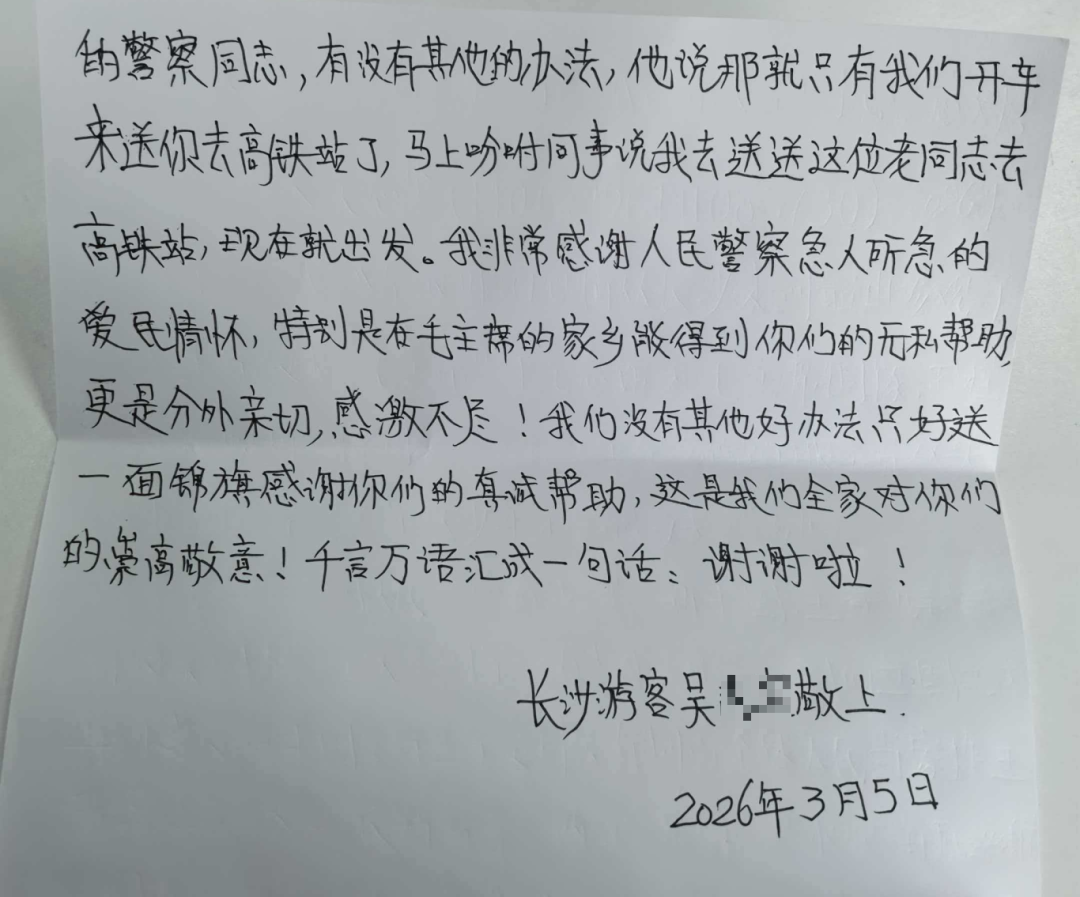 的警察同志，有没有其他的办法，他说那就只有我们开车
来送你去高铁站了，马上吩咐同事说我去送送这位老同志去
高铁站，现在就出发。我非常感谢人民警察急人所急的
爱民情怀，特别是在毛主席的家乡能得到你们的无私帮助，
更是分外亲切，感激不尽！我们没有其他好办法只好送
一面锦旗感谢你们的真诚帮助，这是我们全家对你们
的崇高敬意！千言万语汇成一句话：谢谢啦！
长沙游客吴 敬上.
2026年3月5日